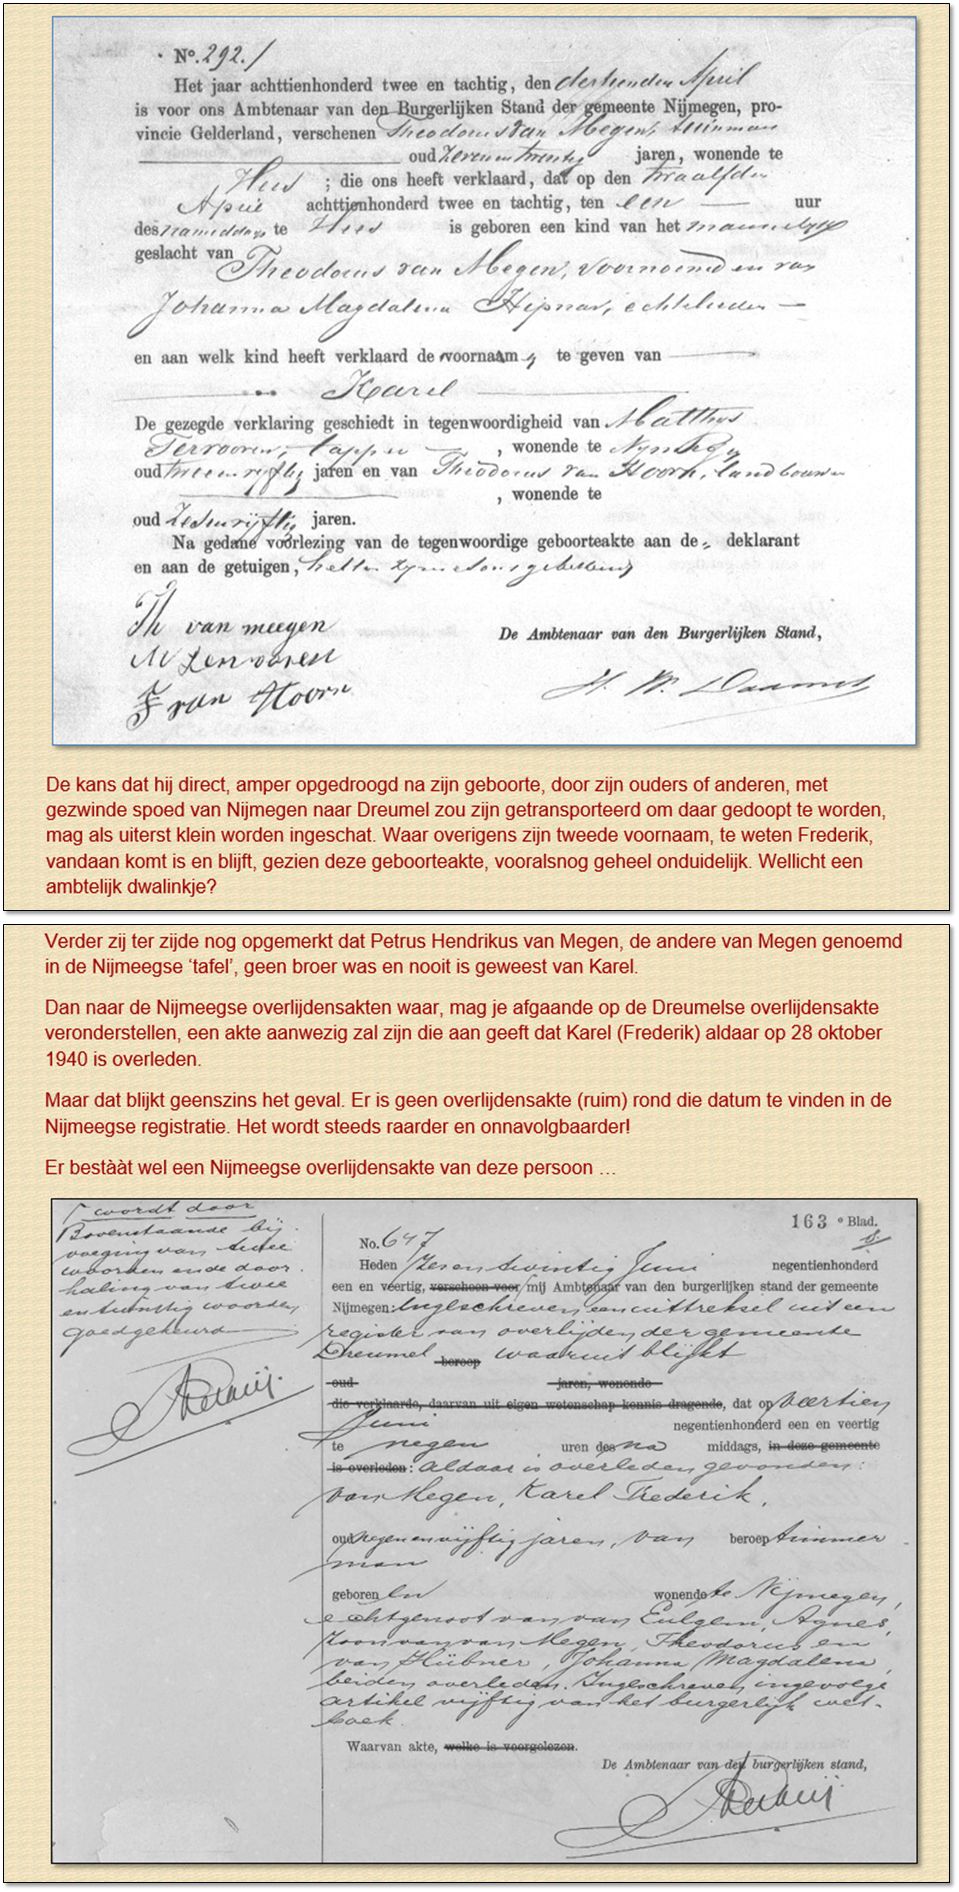 No. 292. /
Het jaar achttienhonderd twee en tachtig, den dertienden April
is voor ons Ambtenaar van den Burgerlijken Stand der gemeente Nijmegen, pro-
vincie Gelderland, verschenen Theodorus van Megen, tuinman
oud zevenentwintig jaren, wonende te
Hees ; die ons heeft verklaard, dat op den twaalfden
April achttienhonderd twee en tachtig, ten een uur
des namiddags te Hees is geboren een kind van het mannelijk
geslacht van
Theodorus van Megen, voornoemd en van
Johanna Magdalena Hipnar, echtelieden —
en aan welk kind heeft verklaard de voornaam te geven van
Karel
De gezegde verklaring geschiedt in tegenwoordigheid van Matthijs
Tervooren, tapper , wonende te Nijmegen
oud tweeenvijftig jaren en van Theodorus van Hoorn, landbouwer
, wonende te
oud zesenvijftig jaren.
Na gedane voorlezing van de tegenwoordige geboorteakte aan de deklarant
en aan de getuigen,
Th van meegen
De Ambtenaar van den Burgerlijken Stand,
M Tervooren
T van Hoorn
De kans dat hij direct, amper opgedroogd na zijn geboorte, door zijn ouders of anderen, met
gezwinde spoed van Nijmegen naar Dreumel zou zijn getransporteerd om daar gedoopt te worden,
mag als uiterst klein worden ingeschat. Waar overigens zijn tweede voornaam, te weten Frederik,
vandaan komt is en blijft, gezien deze geboorteakte, vooralsnog geheel onduidelijk. Wellicht een
ambtelijk dwalinkje?
Verder zij ter zijde nog opgemerkt dat Petrus Hendrikus van Megen, de andere van Megen genoemd
in de Nijmeegse ‘tafel’, geen broer was en nooit is geweest van Karel.
Dan naar de Nijmeegse overlijdensakten waar, mag je afgaande op de Dreumelse overlijdensakte
veronderstellen, een akte aanwezig zal zijn die aan geeft dat Karel (Frederik) aldaar op 28 oktober
1940 is overleden.
Maar dat blijkt geenszins het geval. Er is geen overlijdensakte (ruim) rond die datum te vinden in de
Nijmeegse registratie. Het wordt steeds raarder en onnavolgbaarder!
Er bestààt wel een Nijmeegse overlijdensakte van deze persoon …
wordt door
Bovenstaande bij-
voeging van twee
woorden en de door-
haling van twee
en twintig woorden
goedgekeurd
163 e Blad.
No. 647
Heden zes en twintig Juni negentienhonderd
een en veertig, verscheen voor mij Ambtenaar van den burgerlijken stand der gemeente
Nijmegen: Ingeschreven een uittreksel uit een
register van overlijden der gemeente
Dreumel beroep waaruit blijkt
oud jaren, wonende
die verklaarde, daarvan uit eigen wetenschap kennis dragende, dat op veertien
Juni negentienhonderd een en veertig
te negen uren des na middags, in deze gemeente
is overleden: aldaar is overleden gevonden:
van Megen, Karel Frederik,
oud negen en vijftig jaren, van beroep timmer
man
geboren in wonende te Nijmegen,
echtgenoot van van Eulgem, Agnes,
zoon van van Megen, Theodorus en
van Hübner, Johanna Magdalena,
beiden overleden. Ingeschreven ingevolge
artikel vijftig van het burgerlijk wet-
boek.
Waarvan akte, welke is voorgelezen.
De Ambtenaar van den burgerlijken stand,